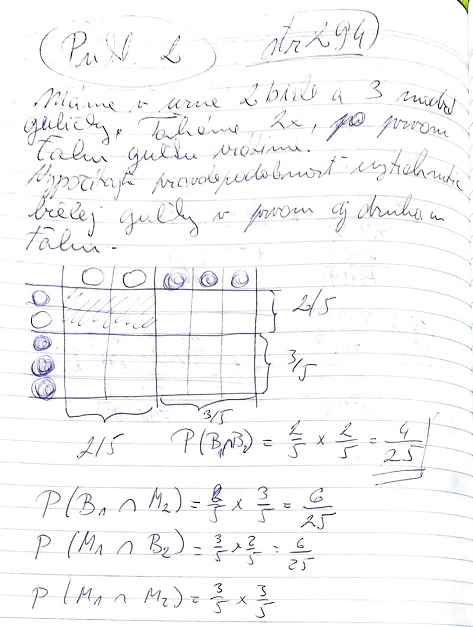 Príkl. 2 str 294)
Máme v urne 2 biele a 3 modré
guličky. Taháme 2x, po prvom
ťahu guľku vrátime.
Vypočítajte pravdepodobnosť vytiahnutia
bielej guľky v prvom aj druhom
ťahu.
2/5
3/5
3/5
2/5 P(B₁∩B₂) = 2/5 × 2/5 = 4/25
P(B₁ ∩ M₂) = 2/5 × 3/5 = 6/25
P(M₁ ∩ B₂) = 3/5 × 2/5 = 6/25
P(M₁ ∩ M₂) = 3/5 × 3/5